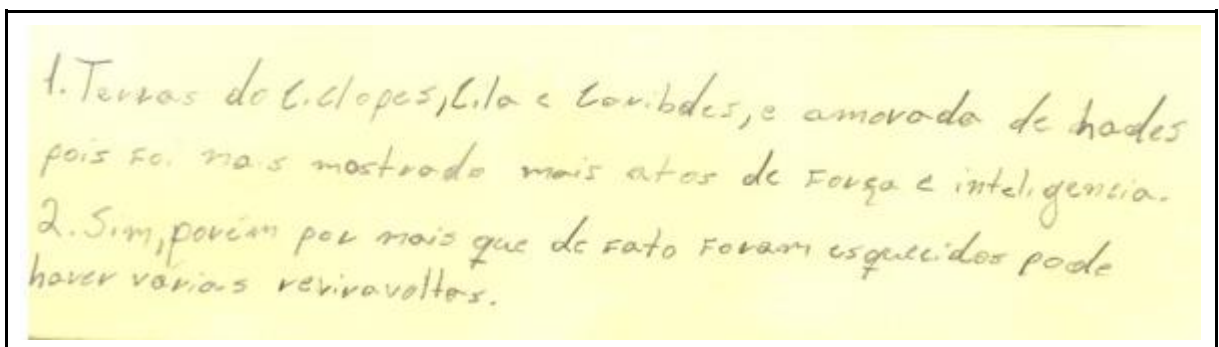 1. Terras do Ciclopes, Cila e Caribdes, e amorada de hades
pois foi mais mostrado mais atos de força e inteligencia.
2. Sim, porém por mais que de fato foram esquecidos pode
haver várias reviravoltas.